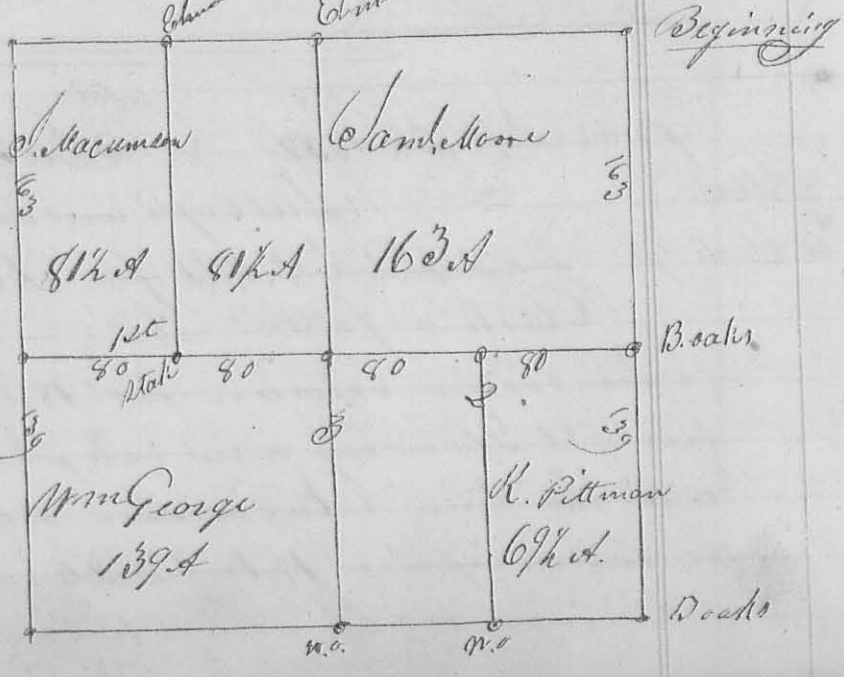 Elm
Elm
Beginning
J. Macumsen
Saml. Moore
163
163
81½ A
81½ A
163 A
1st
80
Stak
80
80
80
B. oaks
139
Wm George
139 A
K. Pittman
69½ A.
B oaks
w.o.
w.o